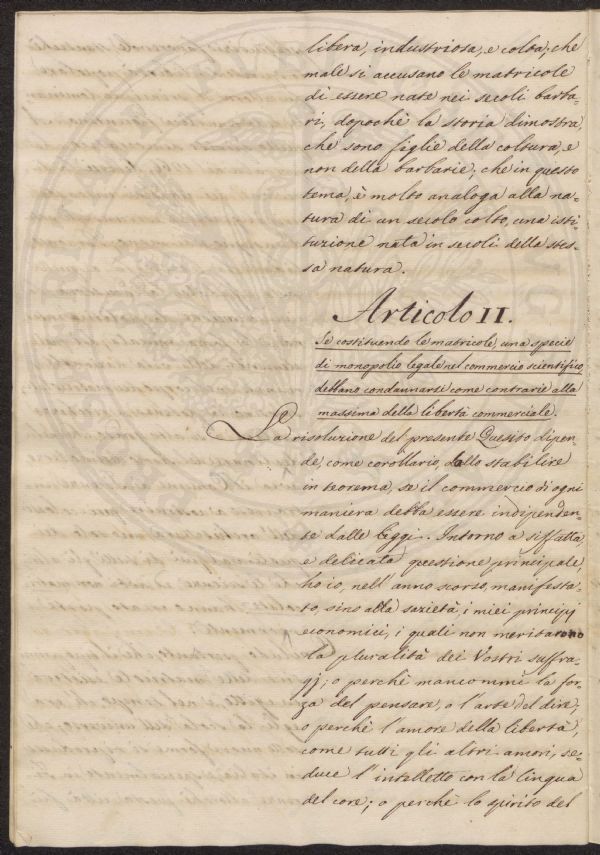 libera, industriosa, e colta; che
male si accusano le matricole
di essere nate nei secoli barba=
ri, dopochè la storia dimostra,
che sono figlie della coltura, e
non della barbarie; che in questo
tema, è molto analoga alla na=
tura di un secolo colto, una isti=
tuzione nata in secoli della stes=
sa natura.
Articolo II.
Se costituendo le matricole, una specie
di monopolio legale nel commercio scientifico,
debbano condannarsi come contrarie alla
massima della libertà commerciale.
La risoluzione del presente Quesito dipen=
de, come corollario, dallo stabilire
in teorema, se il commercio di ogni
maniera debba essere indipenden=
te dalle leggi. Intorno a siffatta,
e delicata questione principale
ho io, nell'anno scorso, manifesta=
to, sino alla sazietà, i miei principj
economici, i quali non meritarono
la pluralità dei Vostri suffra=
gj; o perchè mancommi la for=
za del pensare, o l'arte del dire;
o perchè l'amore della libertà,
come tutti gli altri amori, se=
duce l'intelletto con la lingua
del core; o perchè lo spirito del